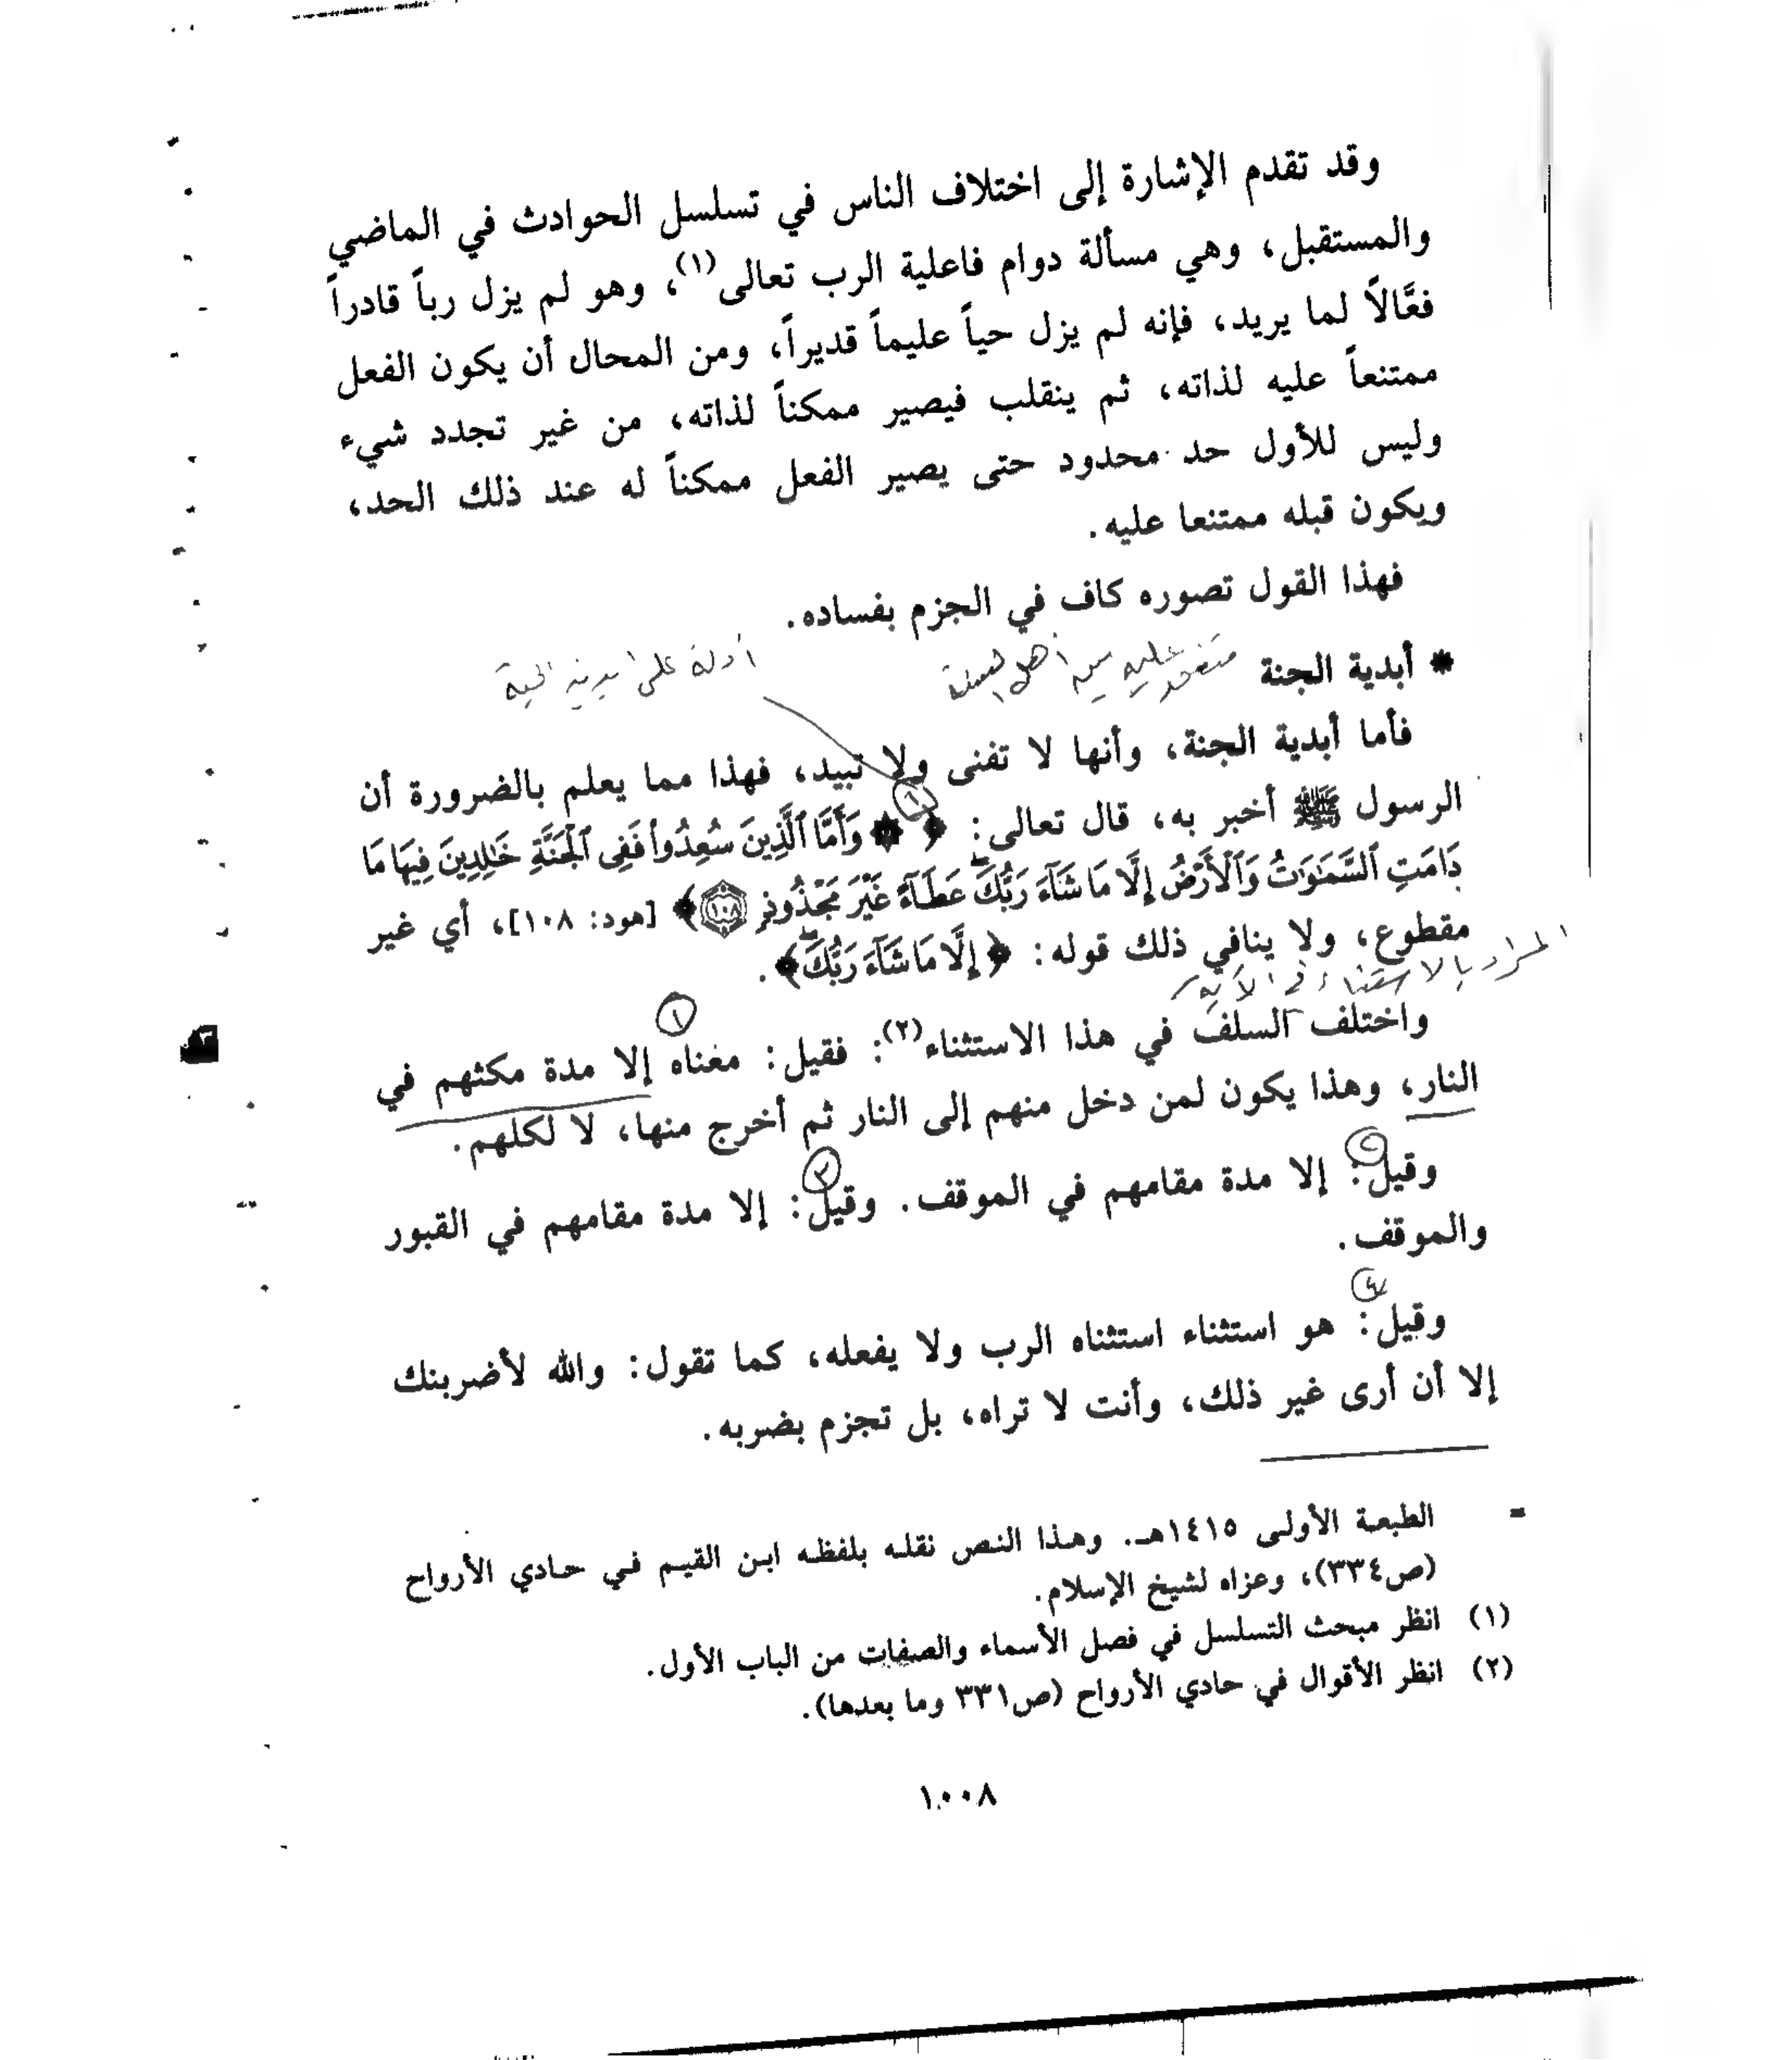 وقد تقدم الإشارة إلى اختلاف الناس في تسلسل الحوادث في الماضي
والمستقبل، وهي مسألة دوام فاعلية الرب تعالى(١)، وهو لم يزل رباً قادراً
فعَّالاً لما يريد، فإنه لم يزل حياً عليماً قديراً، ومن المحال أن يكون الفعل
ممتنعاً عليه لذاته، ثم ينقلب فيصير ممكناً لذاته، من غير تجدد شيء
وليس للأول حد محدود حتى يصير الفعل ممكناً له عند ذلك الحد،
ويكون قبله ممتنعا عليه.
فهذا القول تصوره كاف في الجزم بفساده.
* أبدية الجنة متفق عليه بين أهل السنة أدلة على أبدية الجنة
فأما أبدية الجنة، وأنها لا تفنى ولا تبيد، فهذا مما يعلم بالضرورة أن
١
الرسول ﷺ أخبر به، قال تعالى: ﴿ ۞ وَأَمَّا ٱلَّذِينَ سُعِدُوا۟ فَفِى ٱلْجَنَّةِ خَٰلِدِينَ فِيهَا مَا
دَامَتِ ٱلسَّمَٰوَٰتُ وَٱلْأَرْضُ إِلَّا مَا شَآءَ رَبُّكَ ۖ عَطَآءً غَيْرَ مَجْذُوذٍ ١٠٨﴾ [هود: ١٠٨]، أي غير
مقطوع، ولا ينافي ذلك قوله: ﴿إِلَّا مَا شَآءَ رَبُّكَ ۖ﴾.
المراد بالاستثناء في الآية
١
واختلف السلف في هذا الاستثناء(٢): فقيل: معناه إلا مدة مكثهم في
النار، وهذا يكون لمن دخل منهم إلى النار ثم أخرج منها، لا لكلهم.
٢ ٣
وقيل: إلا مدة مقامهم في الموقف. وقيل: إلا مدة مقامهم في القبور
والموقف.
٤
وقيل: هو استثناء استثناه الرب ولا يفعله، كما تقول: والله لأضربنك
إلا أن أرى غير ذلك، وأنت لا تراه، بل تجزم بضربه.
= الطبعة الأولى ١٤١٥هـ. وهذا النص نقله بلفظه ابن القيم في حادي الأرواح
(ص٣٣٤)، وعزاه لشيخ الإسلام.
(١) انظر مبحث التسلسل في فصل الأسماء والصفات من الباب الأول.
(٢) انظر الأقوال في حادي الأرواح (ص٣٣١ وما بعدها).
١٠٠٨